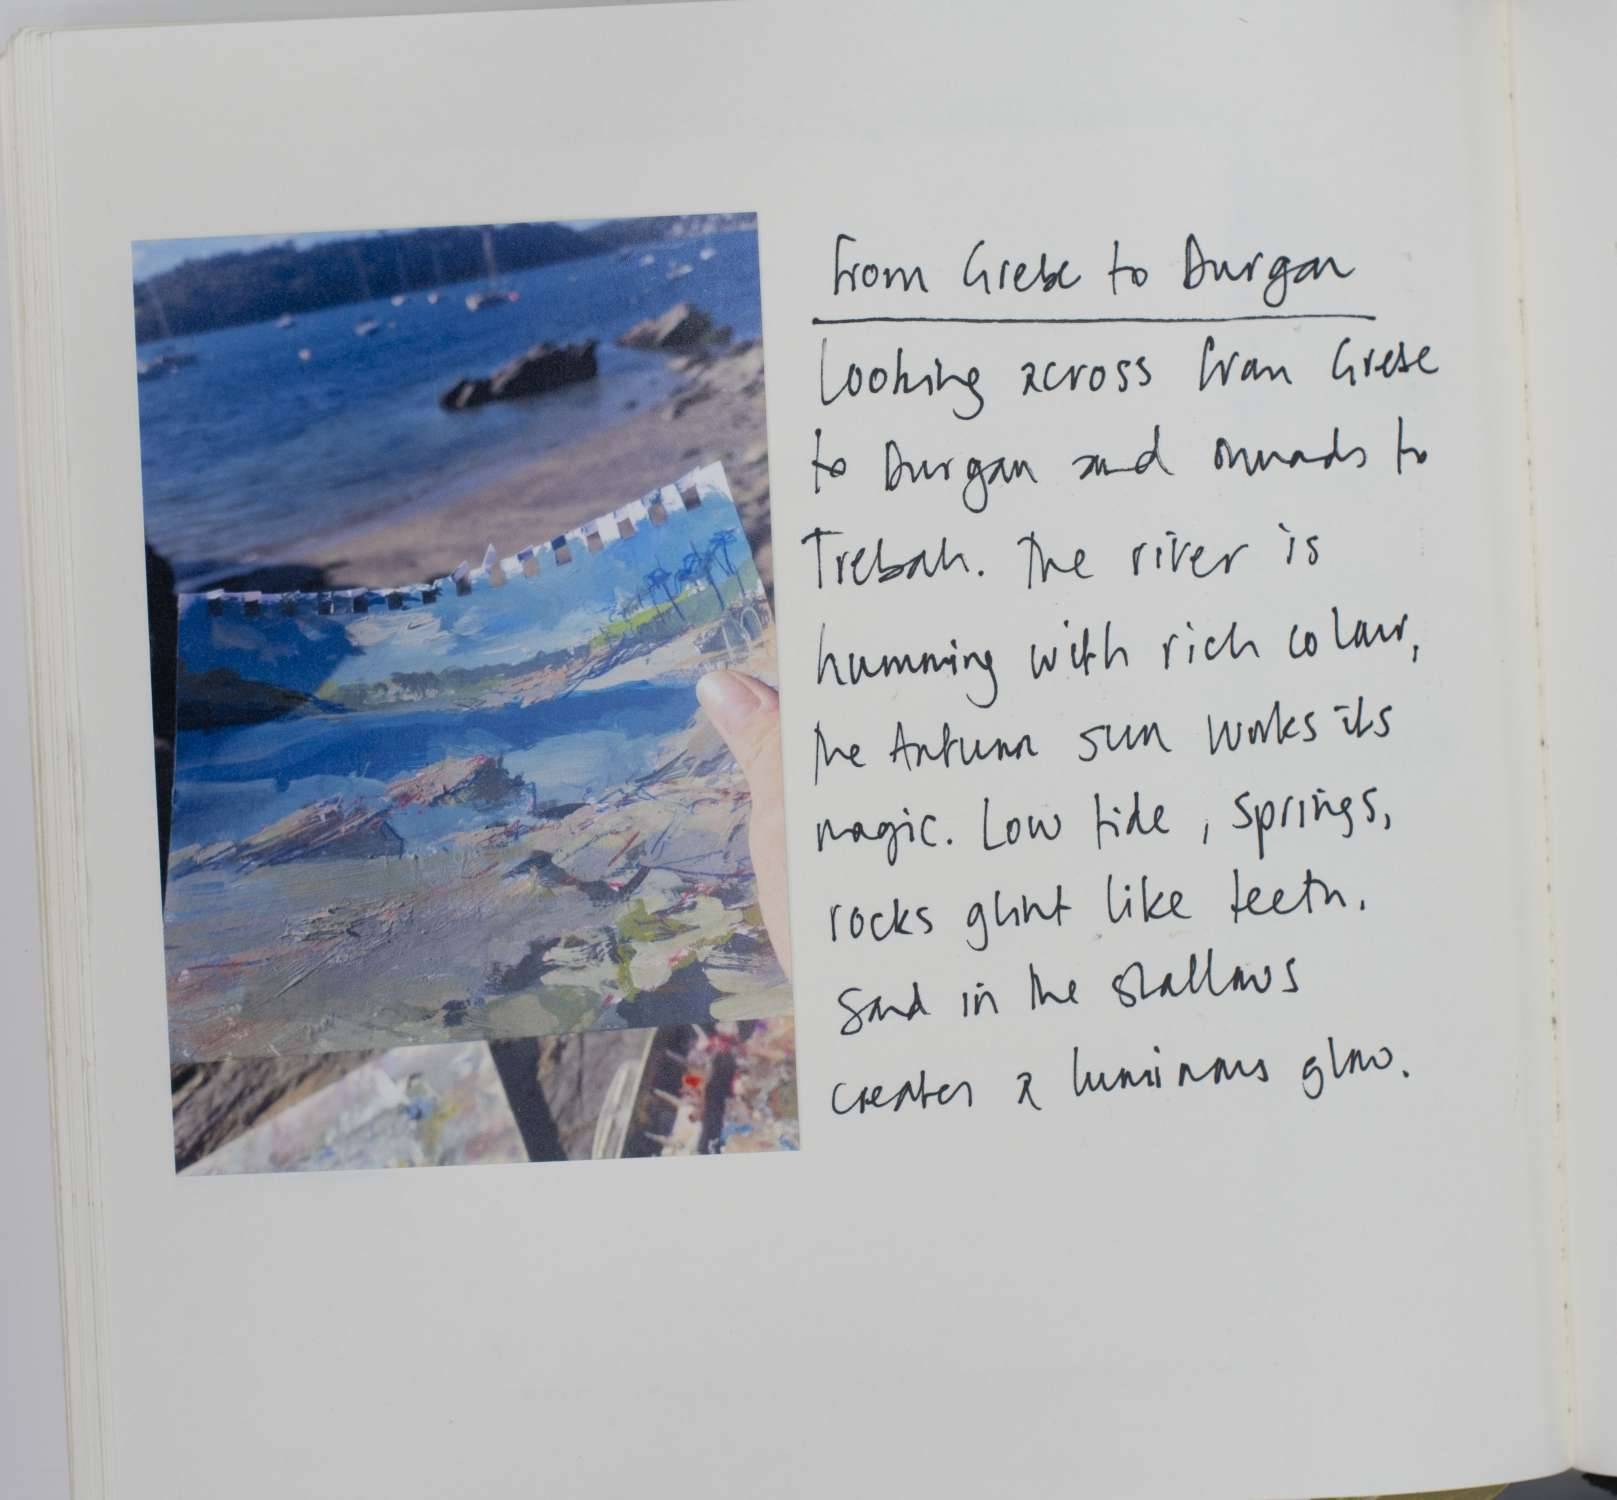 From Grebe to Durgan
Looking across from Grebe
to Durgan and onwards to
Trebah. The river is
humming with rich colour,
the Autumn sun works its
magic. Low tide, springs,
rocks glint like teeth.
Sand in the shallows
creates a luminous glow.